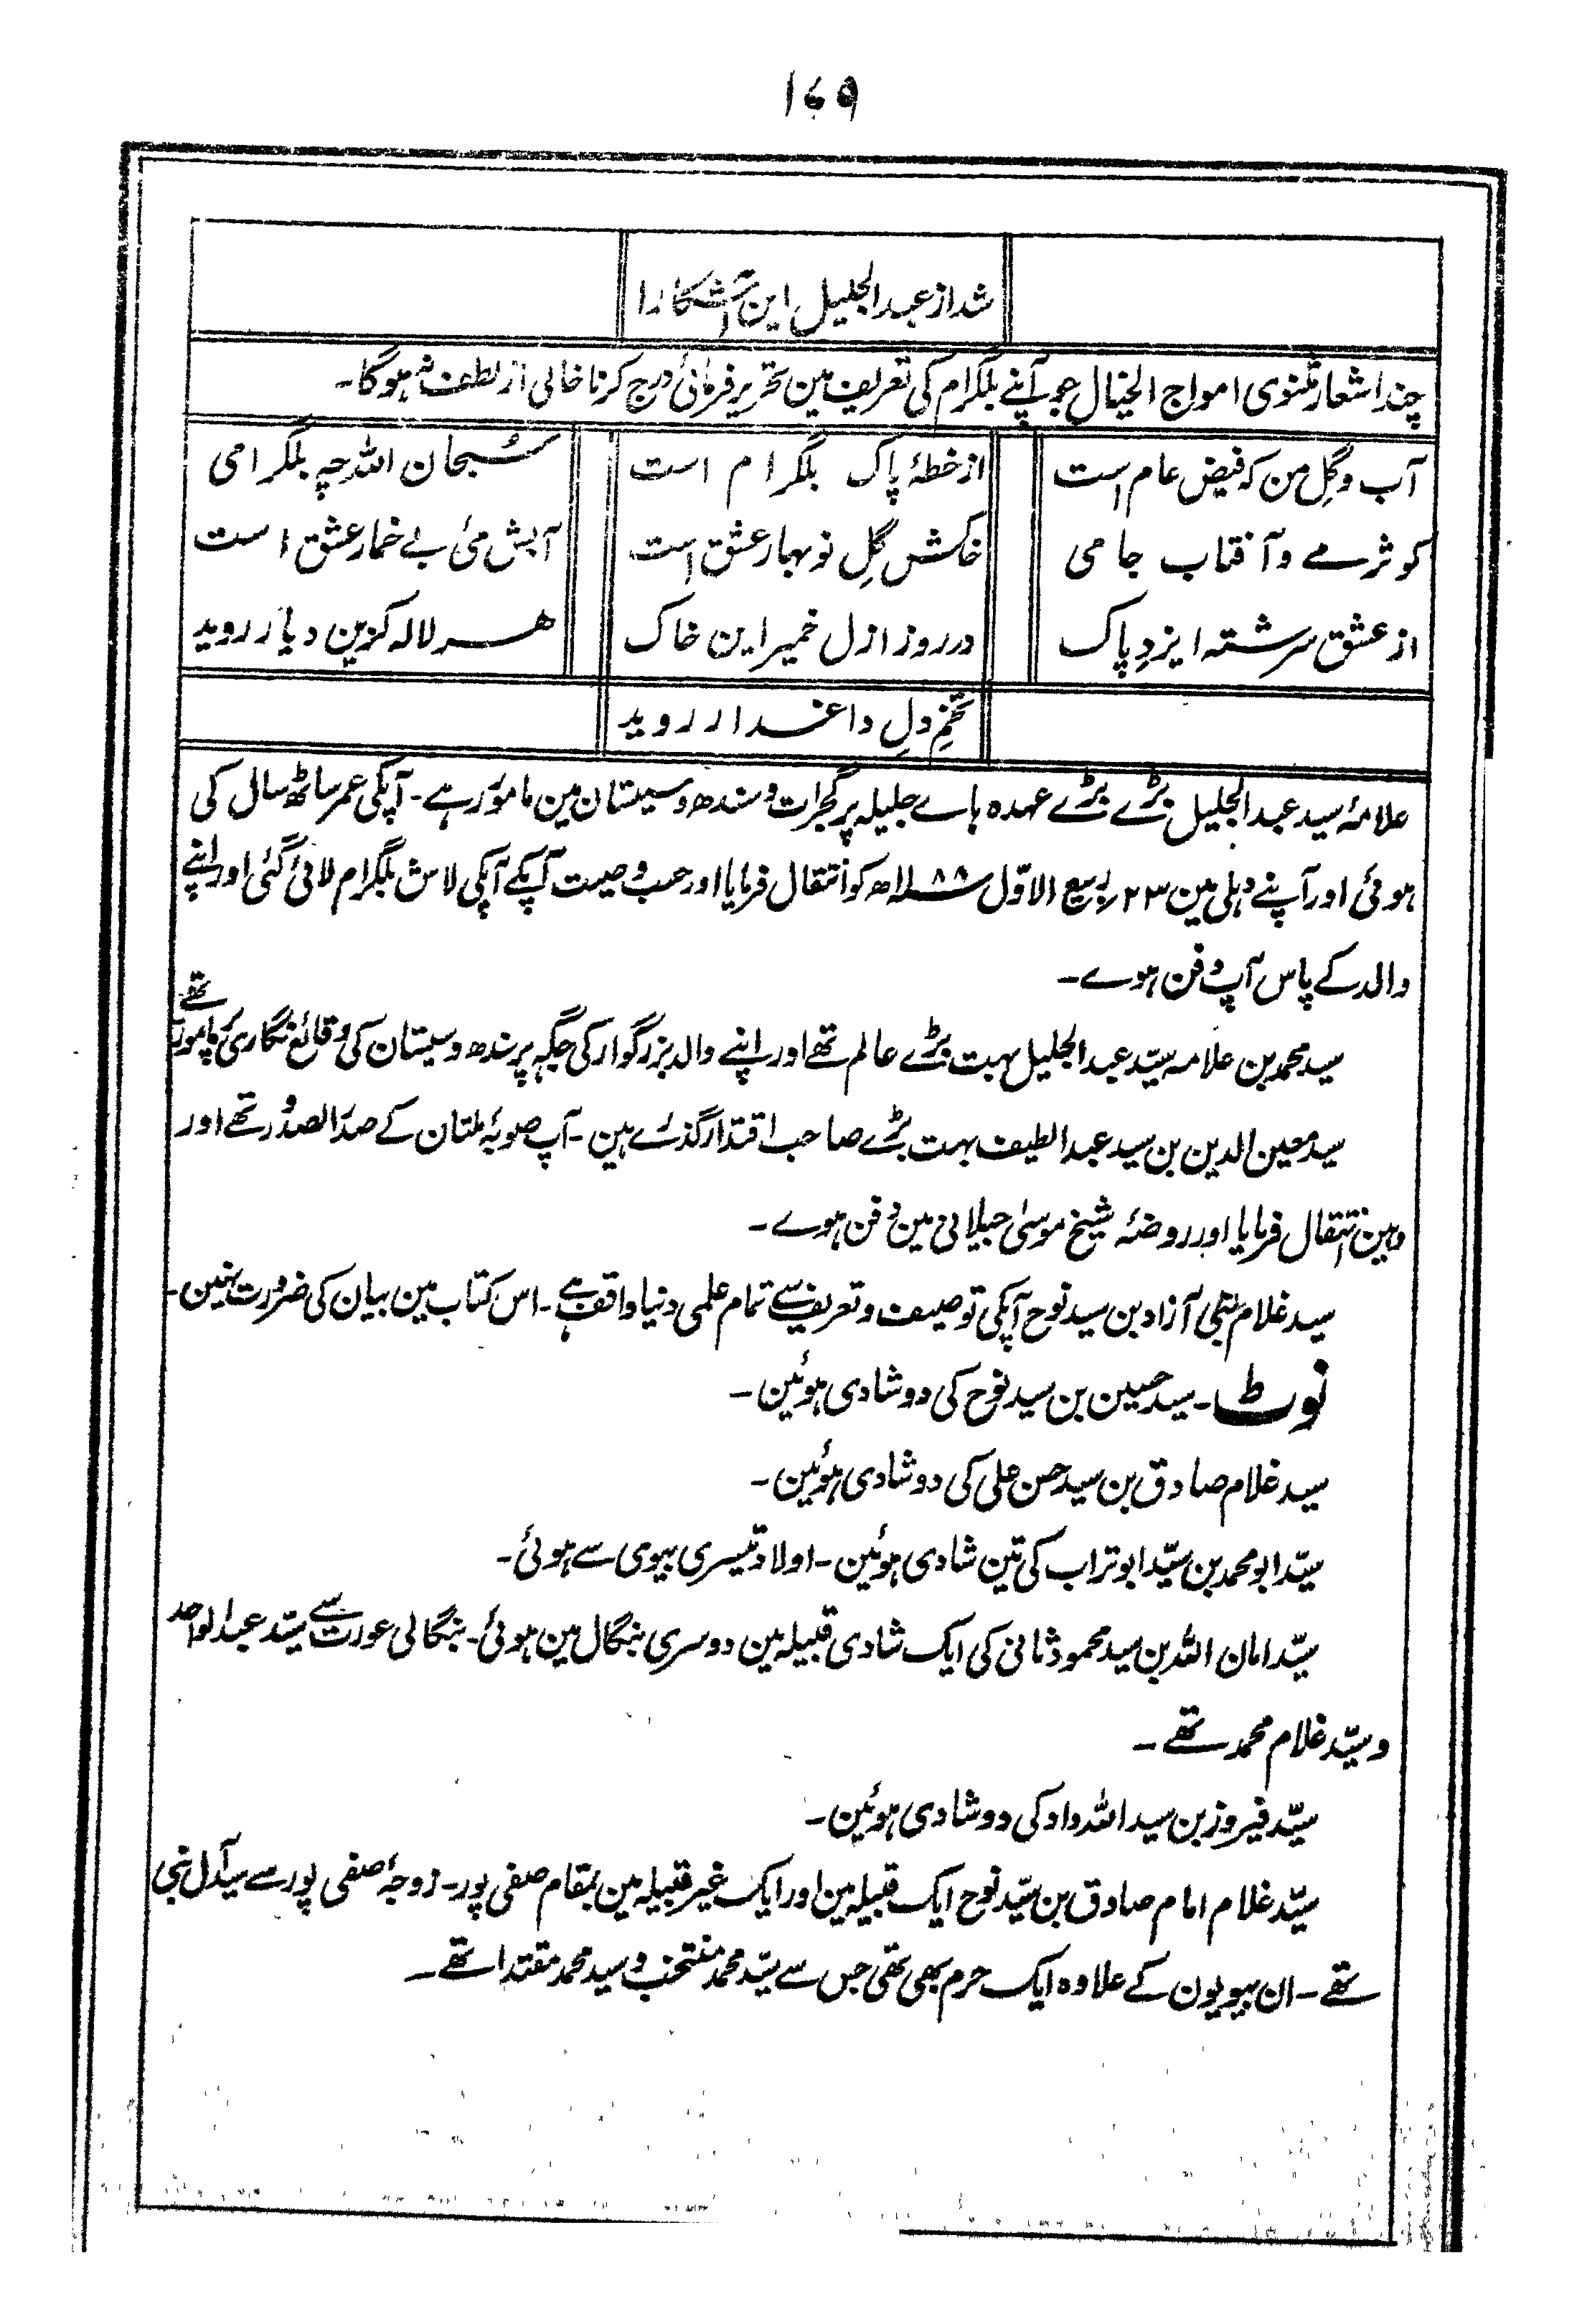 ۱۷۹
شد از عبد الجلیل این آشکارا
چند اشعار مثنوی امواج الخیال جو آپنے بلگرام کی تعریف مین تحریر فرمائی درج کرنا خالی از لطف نہ ہوگا۔
آب و گِل من کہ فیض عام است از خطۂ پاک بلگرام است سُبحان اللہ چہ بلگرامی
کوثر مے و آفتاب جامی خاکش گلِ نو بہار عشق است آبش مئ بے خمار عشق است
از عشق سرشتہ ایزدِ پاک در روز ازل خمیر این خاک ھر لالہ کزین دیار روید
تخمِ دلِ داغدار روید
علامۂ سید عبد الجلیل بڑے بڑے عہدہ ہاے جلیلہ پر گجرات و سندھ و سیستان مین مامور رہے۔ آپکی عمر ساٹھ سال کی
ہوئی اور آپنے دہلی مین ۲۳ ربیع الاوّل کو انتقال فرمایا اور حسب وصیت آپکے آپکی لاش بلگرام لائی گئی اور اپنے
والد کے پاس آپ دفن ہوے۔
سید محمد بن علامہ سیّد عبد الجلیل بہت بڑے عالم تھے اور اپنے والد بزرگوار کی جگہ پر سندھ و سیستان کی وقائع نگاری پر مامور تھے
سید معین الدین بن سید عبد الطیف بہت بڑے صاحب اقتدار گذرے ہین۔ آپ صوبۂ ملتان کے صدر الصدور تھے اور
وہین انتقال فرمایا اور روضۂ شیخ موسیٰ جیلانی مین دفن ہوے۔
سید غلام علی آزاد بن سید نوح آپکی توصیف و تعریف سے تمام علمی دنیا واقف ہے۔ اس کتاب مین بیان کی ضرورت نہین۔
نوٹ۔ سید حسین بن سید نوح کی دو شادی ہوئین۔
سید غلام صادق بن سید حسن علی کی دو شادی ہوئین۔
سیّد ابو محمد بن سیّد ابو تراب کی تین شادی ہوئین۔ اولاد تیسری بیوی سے ہوئی۔
سیّد امان اللہ بن سید محمود ثانی کی ایک شادی قبیلہ مین دوسری بنگال مین ہوئی۔ بنگالی عورت سے سیّد عبد الواحد
و سیّد غلام محمد تھے۔
سیّد فیروز بن سید اللہ داد کی دو شادی ہوئین۔
سیّد غلام امام صادق بن سیّد نوح ایک قبیلہ مین اور ایک غیر قبیلہ مین بمقام صفی پور۔ زوجۂ صفی پور سے سید آل نبی
تھے۔ ان بیویون کے علاوہ ایک حرم بھی تھی جس سے سیّد محمد منتخب و سید محمد مقتدا تھے۔